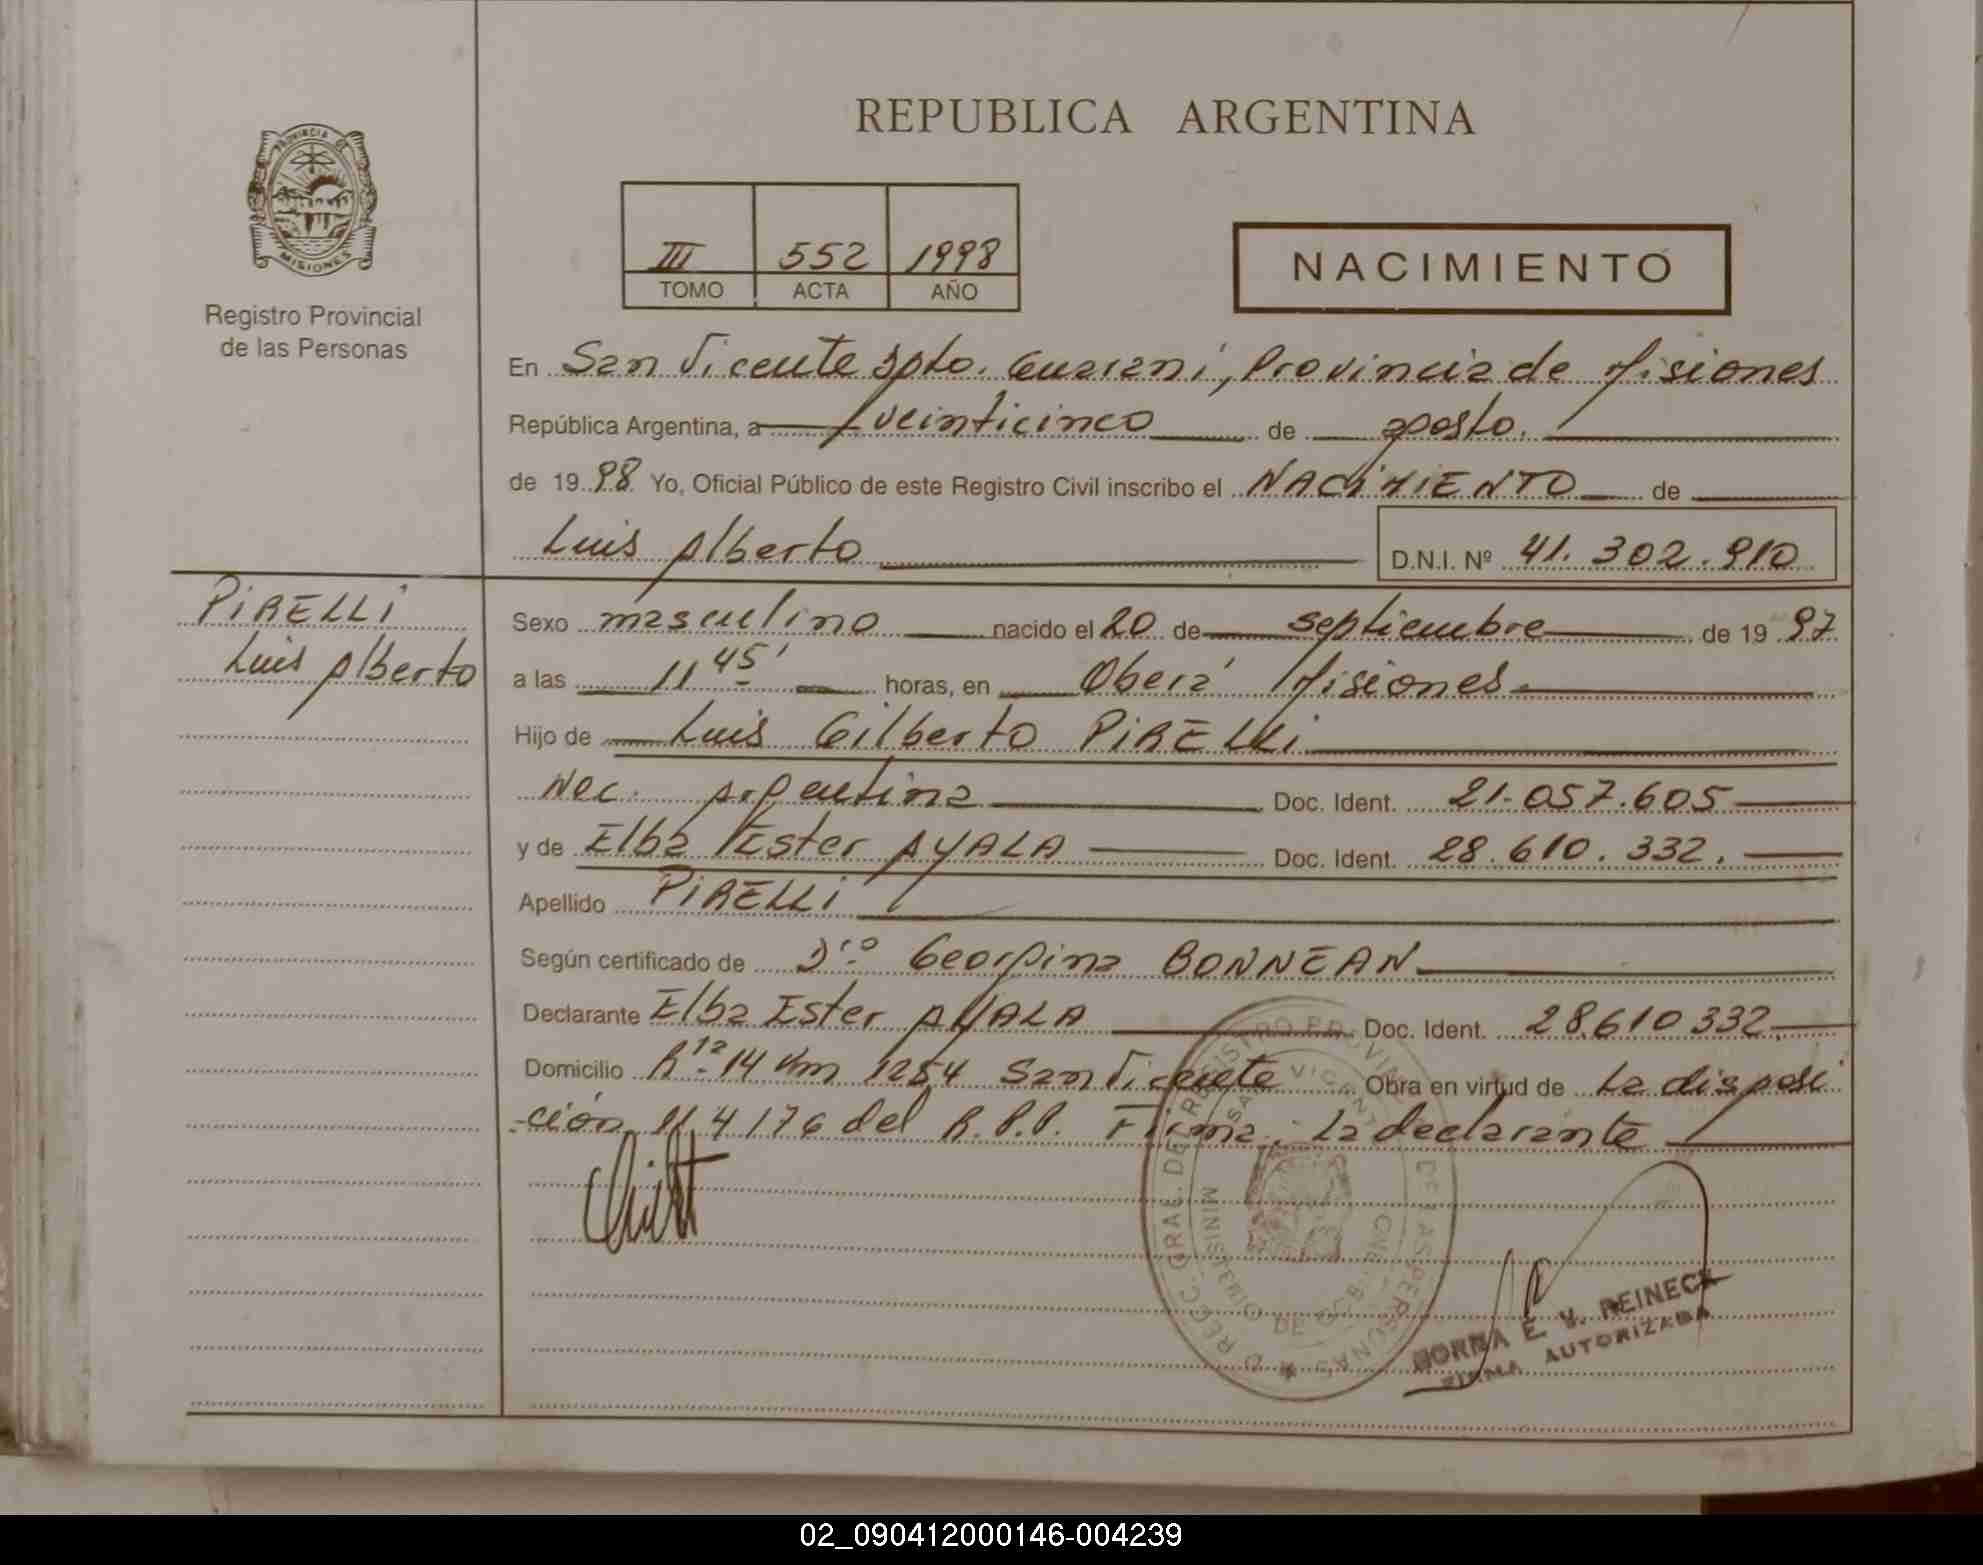 REPUBLICA ARGENTINA
PROVINCIA DE MISIONES
Registro Provincial
de las Personas
III 552 1998
TOMO ACTA AÑO
NACIMIENTO
En San Vicente Dpto. Guaraní, Provincia de Misiones
República Argentina, a veinticinco de agosto.
de 1998 Yo, Oficial Público de este Registro Civil inscribo el NACIMIENTO de
Luis Alberto D.N.I. Nº 41.302.910
PIRELLI
Luis Alberto
Sexo masculino nacido el 20 de septiembre de 1997
a las 11 45' horas, en Oberá Misiones.
Hijo de Luis Gilberto PIRELLI
Nac. Argentina Doc. Ident. 21.057.605
y de Elba Ester AYALA Doc. Ident. 28.610.332.
Apellido PIRELLI
Según certificado de Georgina BONNEAN
Declarante Elba Ester AYALA Doc. Ident. 28.610.332.
Domicilio 14 Km 1254 San Vicente Obra en virtud de La disposi
-ción 4/76 del R.P.P. Firma: La declarante
E. V. REINECK
FIRMA AUTORIZADA
02_090412000146-004239